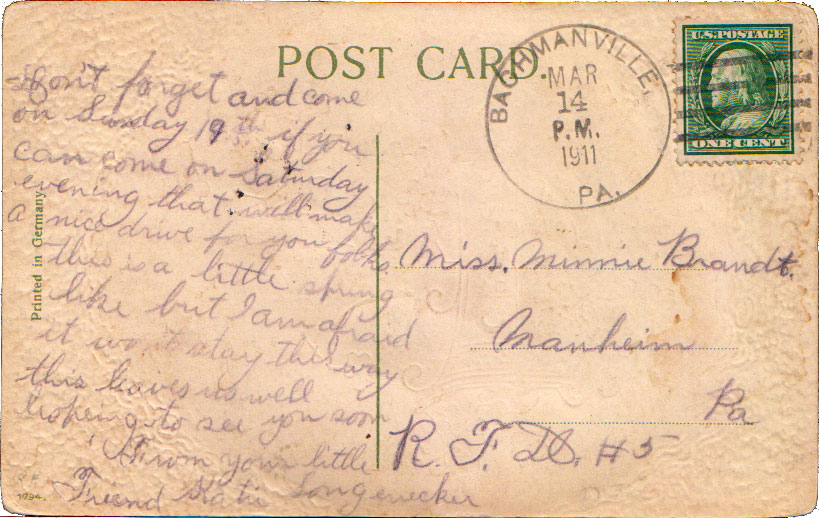 POST CARD.
BACHMANVILLE,
MAR
14
P.M.
1911
PA.
U.S. POSTAGE
ONE CENT
Don't forget and come
on Sunday 19th if you
can come on Saturday
evening that will make
a nice drive for you folks
this is a little spring
like but I am afraid
it wont stay this way
this leaves us well
hopeing to see you soon
From your little
Friend Katie Longenecker
Printed in Germany.
1794.
Miss. Minnie Brandt.
Manheim
Pa
R. F. D. #5